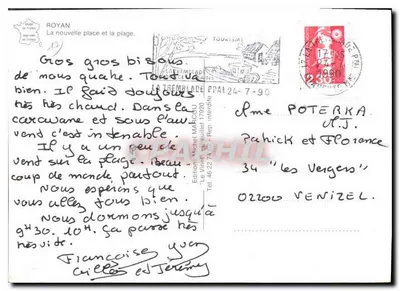 ROYAN
La nouvelle place et la plage.
Gos gros bisous
de nous quatre. Tout va
bien. Il fait toujours
très très chaud. Dans la
caravane et sous l'au
vent c'est intenable.
Il y a un peu de
vent sur la plage. Beau-
coup de monde partout.
Nous espérons que
vous allez tous bien.
Nous dormons jusqu'à
9H30. 10H. Ça passe très
très vite.
Françoise Yvon
Gilles et Jérémy
TOURISME
LA TREMBLADE PPAL 24-7-90
2,30
Mme POTERKA
M.J.
Patrick et Florence
34 "les Vergers"
02200 VENIZEL